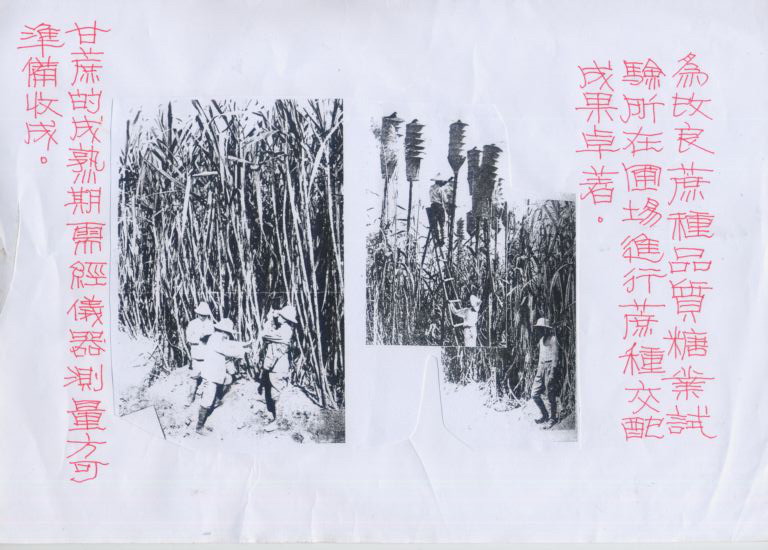 為改良蔗種品質糖業試
驗所在圃場進行蔗種交配
成果卓著。
甘蔗的成熟期需經儀器測量方可
準備收成。